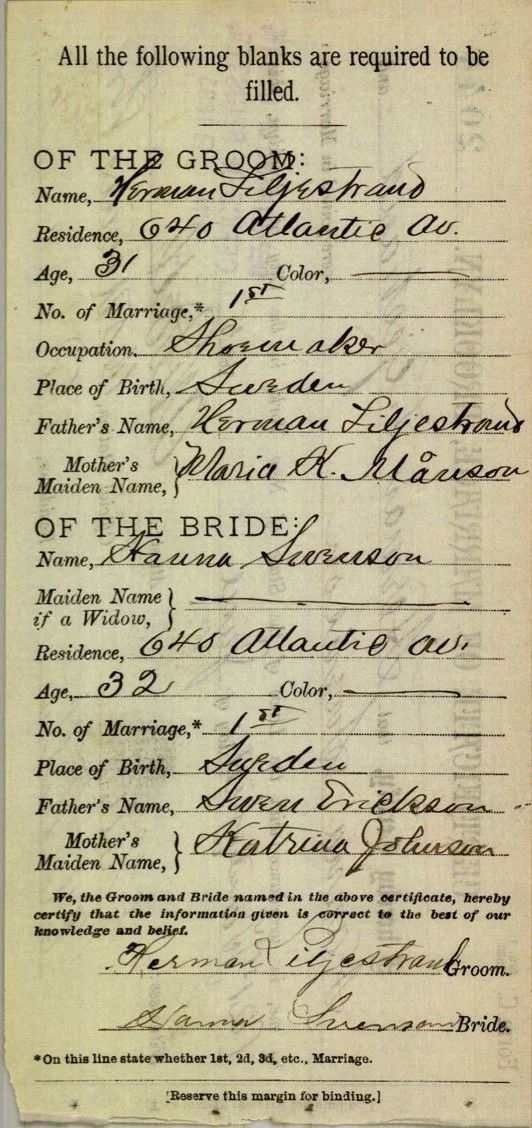 All the following blanks are required to be
filled.
OF THE GROOM:
Name, Herman Liljestrand
Residence, 640 Atlantic Av.
Age, 31 Color,
No. of Marriage,* 1st
Occupation, Shoemaker
Place of Birth, Sweden
Father's Name, Herman Liljestrand
Mother's
Maiden Name, Maria K. Månson
OF THE BRIDE:
Name, Hanna Swenson
Maiden Name
if a Widow,
Residence, 640 Atlantic av.
Age, 32 Color,
No. of Marriage,* 1st
Place of Birth, Sweden
Father's Name, Swen Erickson
Mother's
Maiden Name, Katrina Johnson
We, the Groom and Bride named in the above certificate, hereby
certify that the information given is correct to the best of our
knowledge and belief.
Herman Liljestrand Groom.
Hanna Svenson Bride.
*On this line state whether 1st, 2d, 3d, etc., Marriage.
[Reserve this margin for binding.]